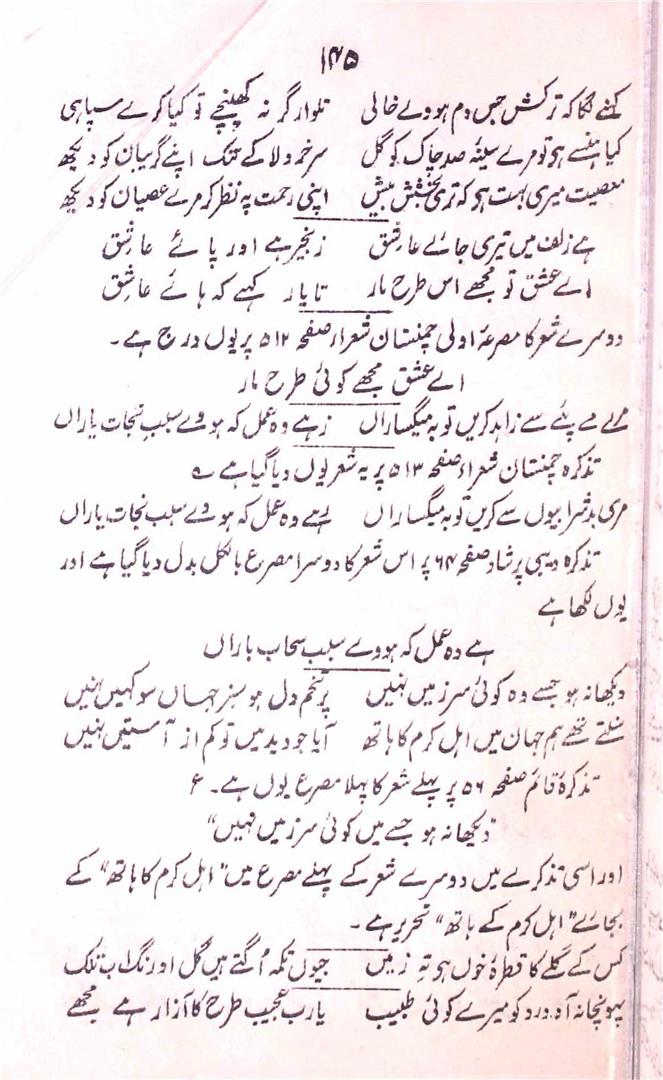 ۱۴۵
کہنے لگا کہ ترکش جس دم ہووے خالی تلوار گر نہ کھینچے تو کیا کرے سپاہی
کیا ہنسے ہو تو مرے سینۂ صد چاک کو گل سرخرو لا کے تنک اپنے گریبان کو دیکھ
معصیت میری بہت ہو کہ تری بخشش بیش اپنی رحمت پہ نظر کر مرے عصیان کو دیکھ
ہے زلف میں تیری جائے عاشق زنجیر ہے اور پائے عاشق
اے عشق تو مجھے اس طرح مار تا یار کہے کہ ہائے عاشق
دوسرے شعر کا مصرعۂ اولی چمنستان شعراء صفحہ ۵۱۲ پر یوں درج ہے۔
اے عشق مجھے کوئی طرح مار
مرے مے پئے سے زاہد کریں توبہ میگساراں زہے وہ عمل کہ ہووے سبب نجات یاراں
تذکرہ چمنستان شعراء صفحہ ۵۱۳ پر یہ شعر یوں دیا گیا ہے ؎
مری بد شرابیوں سے کریں توبہ میگساراں ہے وہ عمل کہ ہووے سبب نجات یاراں
تذکرہ دیبی پرشاد صفحہ ۶۴ پر اس شعر کا دوسرا مصرع بالکل بدل دیا گیا ہے اور
یوں لکھا ہے
ہے وہ عمل کہ ہووے سبب سحاب باراں
دیکھا نہ ہو جسے وہ کوئی سرزمیں نہیں پر تخم دل ہو سبز جہاں سو کہیں نہیں
سنتے تھے ہم جہان میں اہل کرم کا ہاتھ آیا جو دید میں تو کم از آستیں نہیں
تذکرۂ قائم صفحہ ۵۶ پر پہلے شعر کا پہلا مصرع یوں ہے۔ ؏
"دیکھا نہ ہو جسے میں کوئی سرزمیں نہیں"
اور اسی تذکرے میں دوسرے شعر کے پہلے مصرع میں "اہل کرم کا ہاتھ" کے
بجائے "اہل کرم کے ہاتھ" تحریر ہے۔
کس کے گلے کا قطرۂ خوں ہو تہ زمیں جیوں تکمہ اُگتے ہیں گل اورنگ اب تلک
پہونچا نہ آہ درد کو میرے کوئی طبیب یا رب عجیب طرح کا آزار ہے مجھے